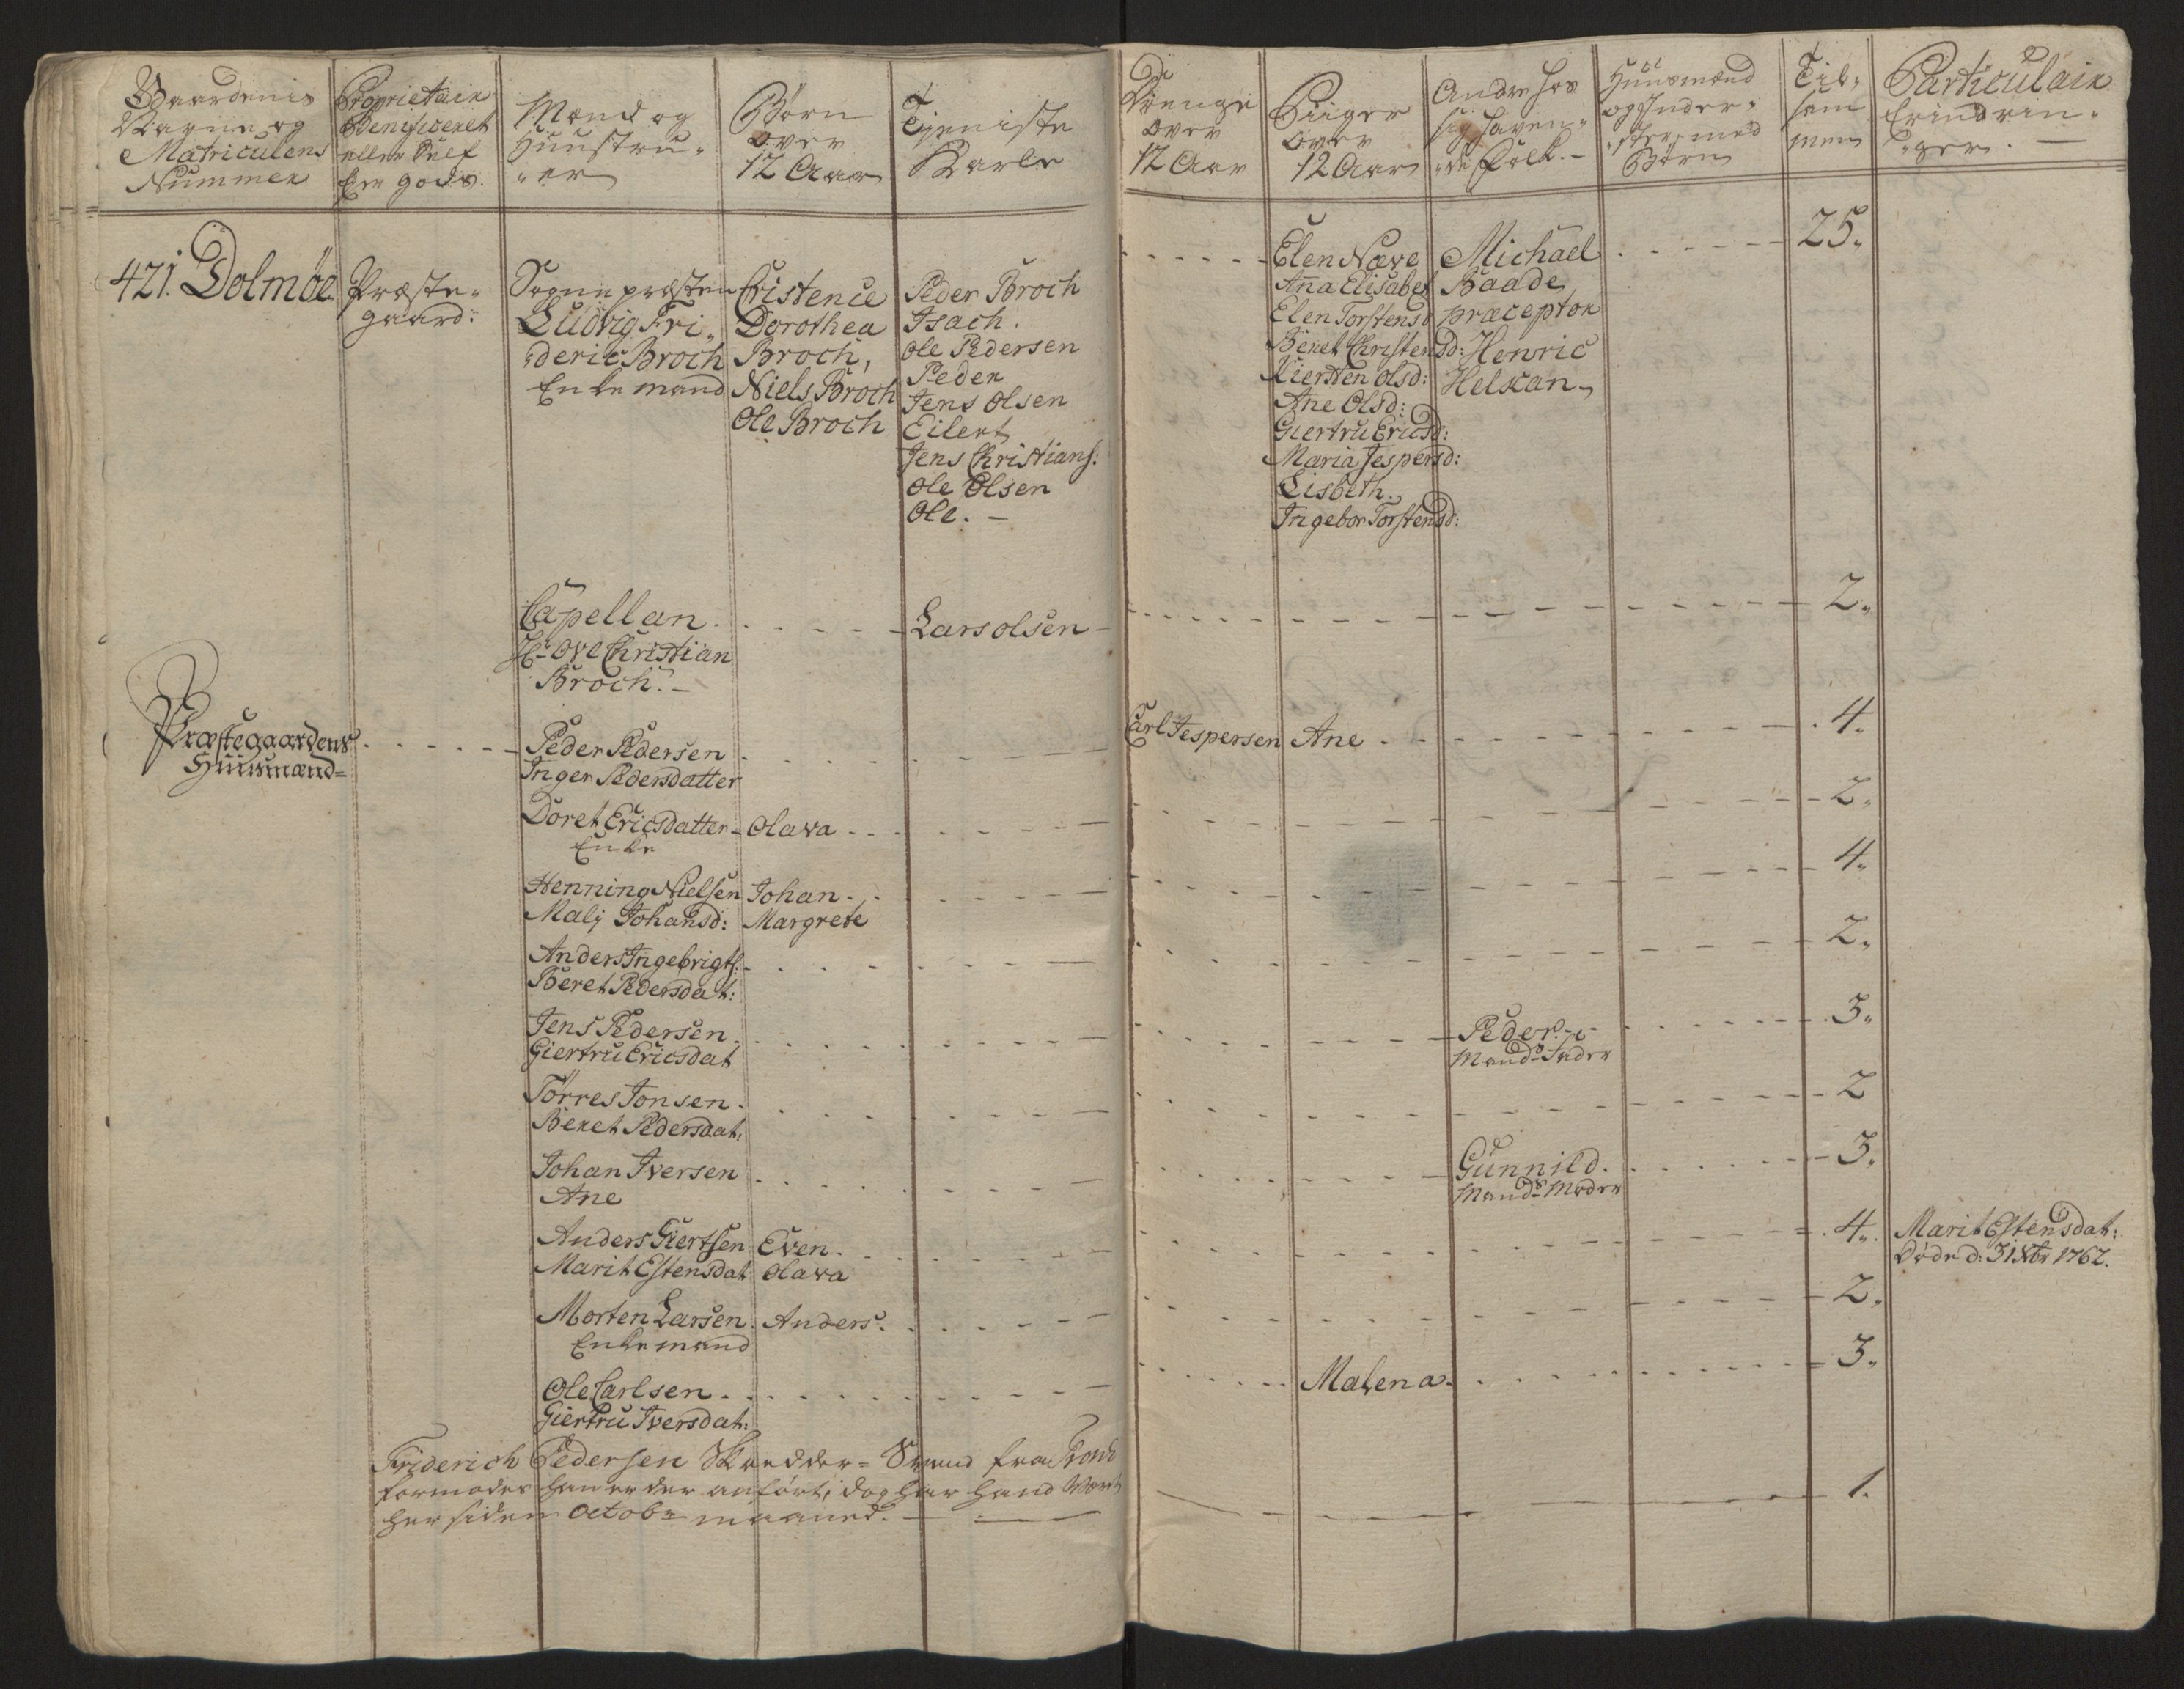 Gaardenis
Navne og
Matriculens
Nummer
Proprietair
Beneficeret
eller Self
Eier gods.
Mænd og
Huustru„
„er
Børn
over
12 Aar
Tjeniste
Karle
Drenge
over
12 Aar
Piiger
over
12 Aar
Andre hos
sig haven„
„de folk.-
Huusmænd
og Inder„
„ster, med
Børn
Til„
sam
men
Particulair
Erindrin„
„ger. —
421. Dolmøe.
Præste„
gaard.
Sognepræsten
Ludvig Fri„
„deric Broch
Enkemand
Cistence
Dorothea
Broch,
Niels Broch
Ole Broch
Peder Broch
Isach.
Ole Pedersen
Peder
Jens Olsen
Eilert
Jens Christians:
Ole Olsen
Ole. —
Elen Næve
Aña Elisabet
Elen Torstensd
Beret Christensd:
Kiersten Olsd:
Ane Olsd:
Giertru Ericsd:
Maria Jespersd:
Lisbeth.
Ingebor Torstensd:
Michael
Baade
præceptor
Henric
Helkan
25.
Capellan.
Hr Ove Christian
Broch. —
Lars olsen
2.
Præstegaardens
Huusmænd=
Peder Pedersen
Inger Pedersdatter
Carl Jespersen
Ane
4.
Doret Ericsdatter
Enke
Olava
2.
Henning Nielsen
Malj Johansd:
Johan
Margrete
4.
Anders Ingebrigts:
Beret Pedersdat:
2.
Jens Pedersen
Giertru Ericsdat
Peder
Mands Fader
3.
Torres Jonsen
Beret Pedersdat:
2
Johan Iversen
Ane
Gunnild.
Mands Moder
3.
Anders Giertsen
Marit Estensdat
Even
Olava
4.
Marit Estensdat:
Døde d: 31 Xbr 1762.
Morten Larsen
Enkemand
Anders.
2.
Ole Carlsen
Giertru Iversdat:
Malena
3.
Friderich Pedersen Skredder= Svend fra Trond
formodes han er der anført, dog har hand Vært
her siden Octobr maaned. —
1.